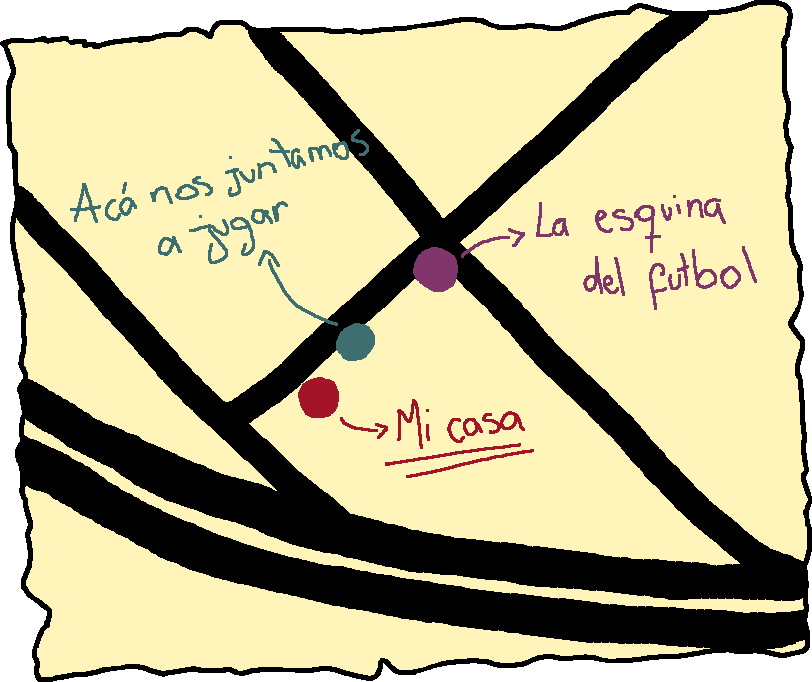 Acá nos juntamos
a jugar
La esquina
del futbol
Mi casa